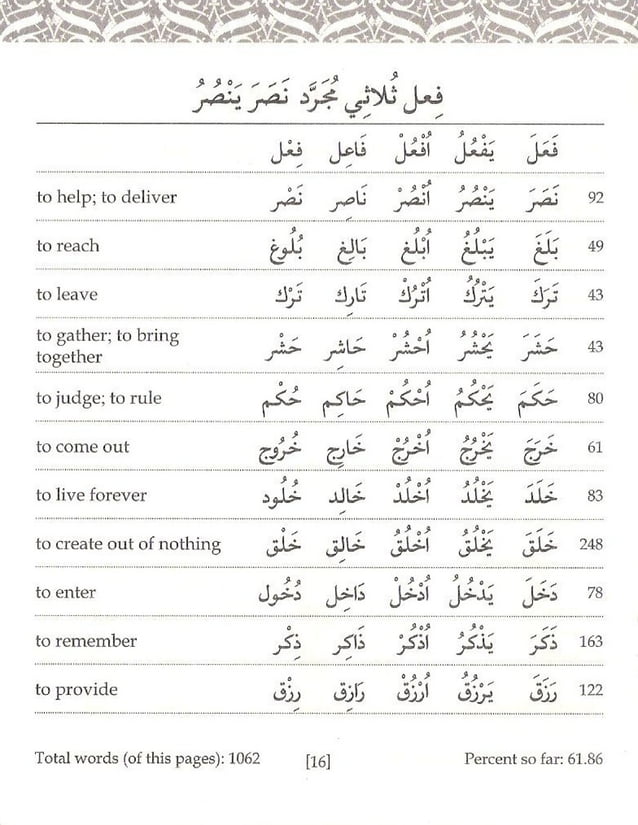 فِعل ثُلاثِي مُجَرَّد نَصَرَ يَنْصُرُ
فَعَلَ يَفْعُلُ اُفْعُلْ فَاعِل فِعْل
92 نَصَرَ يَنْصُرُ اُنْصُرْ نَاصِر نَصْر to help; to deliver
49 بَلَغَ يَبْلُغُ اُبْلُغْ بَالِغ بُلُوغ to reach
43 تَرَكَ يَتْرُكُ اُتْرُكْ تَارِك تَرْك to leave
43 حَشَرَ يَحْشُرُ اُحْشُرْ حَاشِر حَشْر to gather; to bring
together
80 حَكَمَ يَحْكُمُ اُحْكُمْ حَاكِم حُكْم to judge; to rule
61 خَرَجَ يَخْرُجُ اُخْرُجْ خَارِج خُرُوج to come out
83 خَلَدَ يَخْلُدُ اُخْلُدْ خَالِد خُلُود to live forever
248 خَلَقَ يَخْلُقُ اُخْلُقْ خَالِق خَلْق to create out of nothing
78 دَخَلَ يَدْخُلُ اُدْخُلْ دَاخِل دُخُول to enter
163 ذَكَرَ يَذْكُرُ اُذْكُرْ ذَاكِر ذِكْر to remember
122 رَزَقَ يَرْزُقُ اُرْزُقْ رَازِق رِزْق to provide
Total words (of this pages): 1062 [16] Percent so far: 61.86